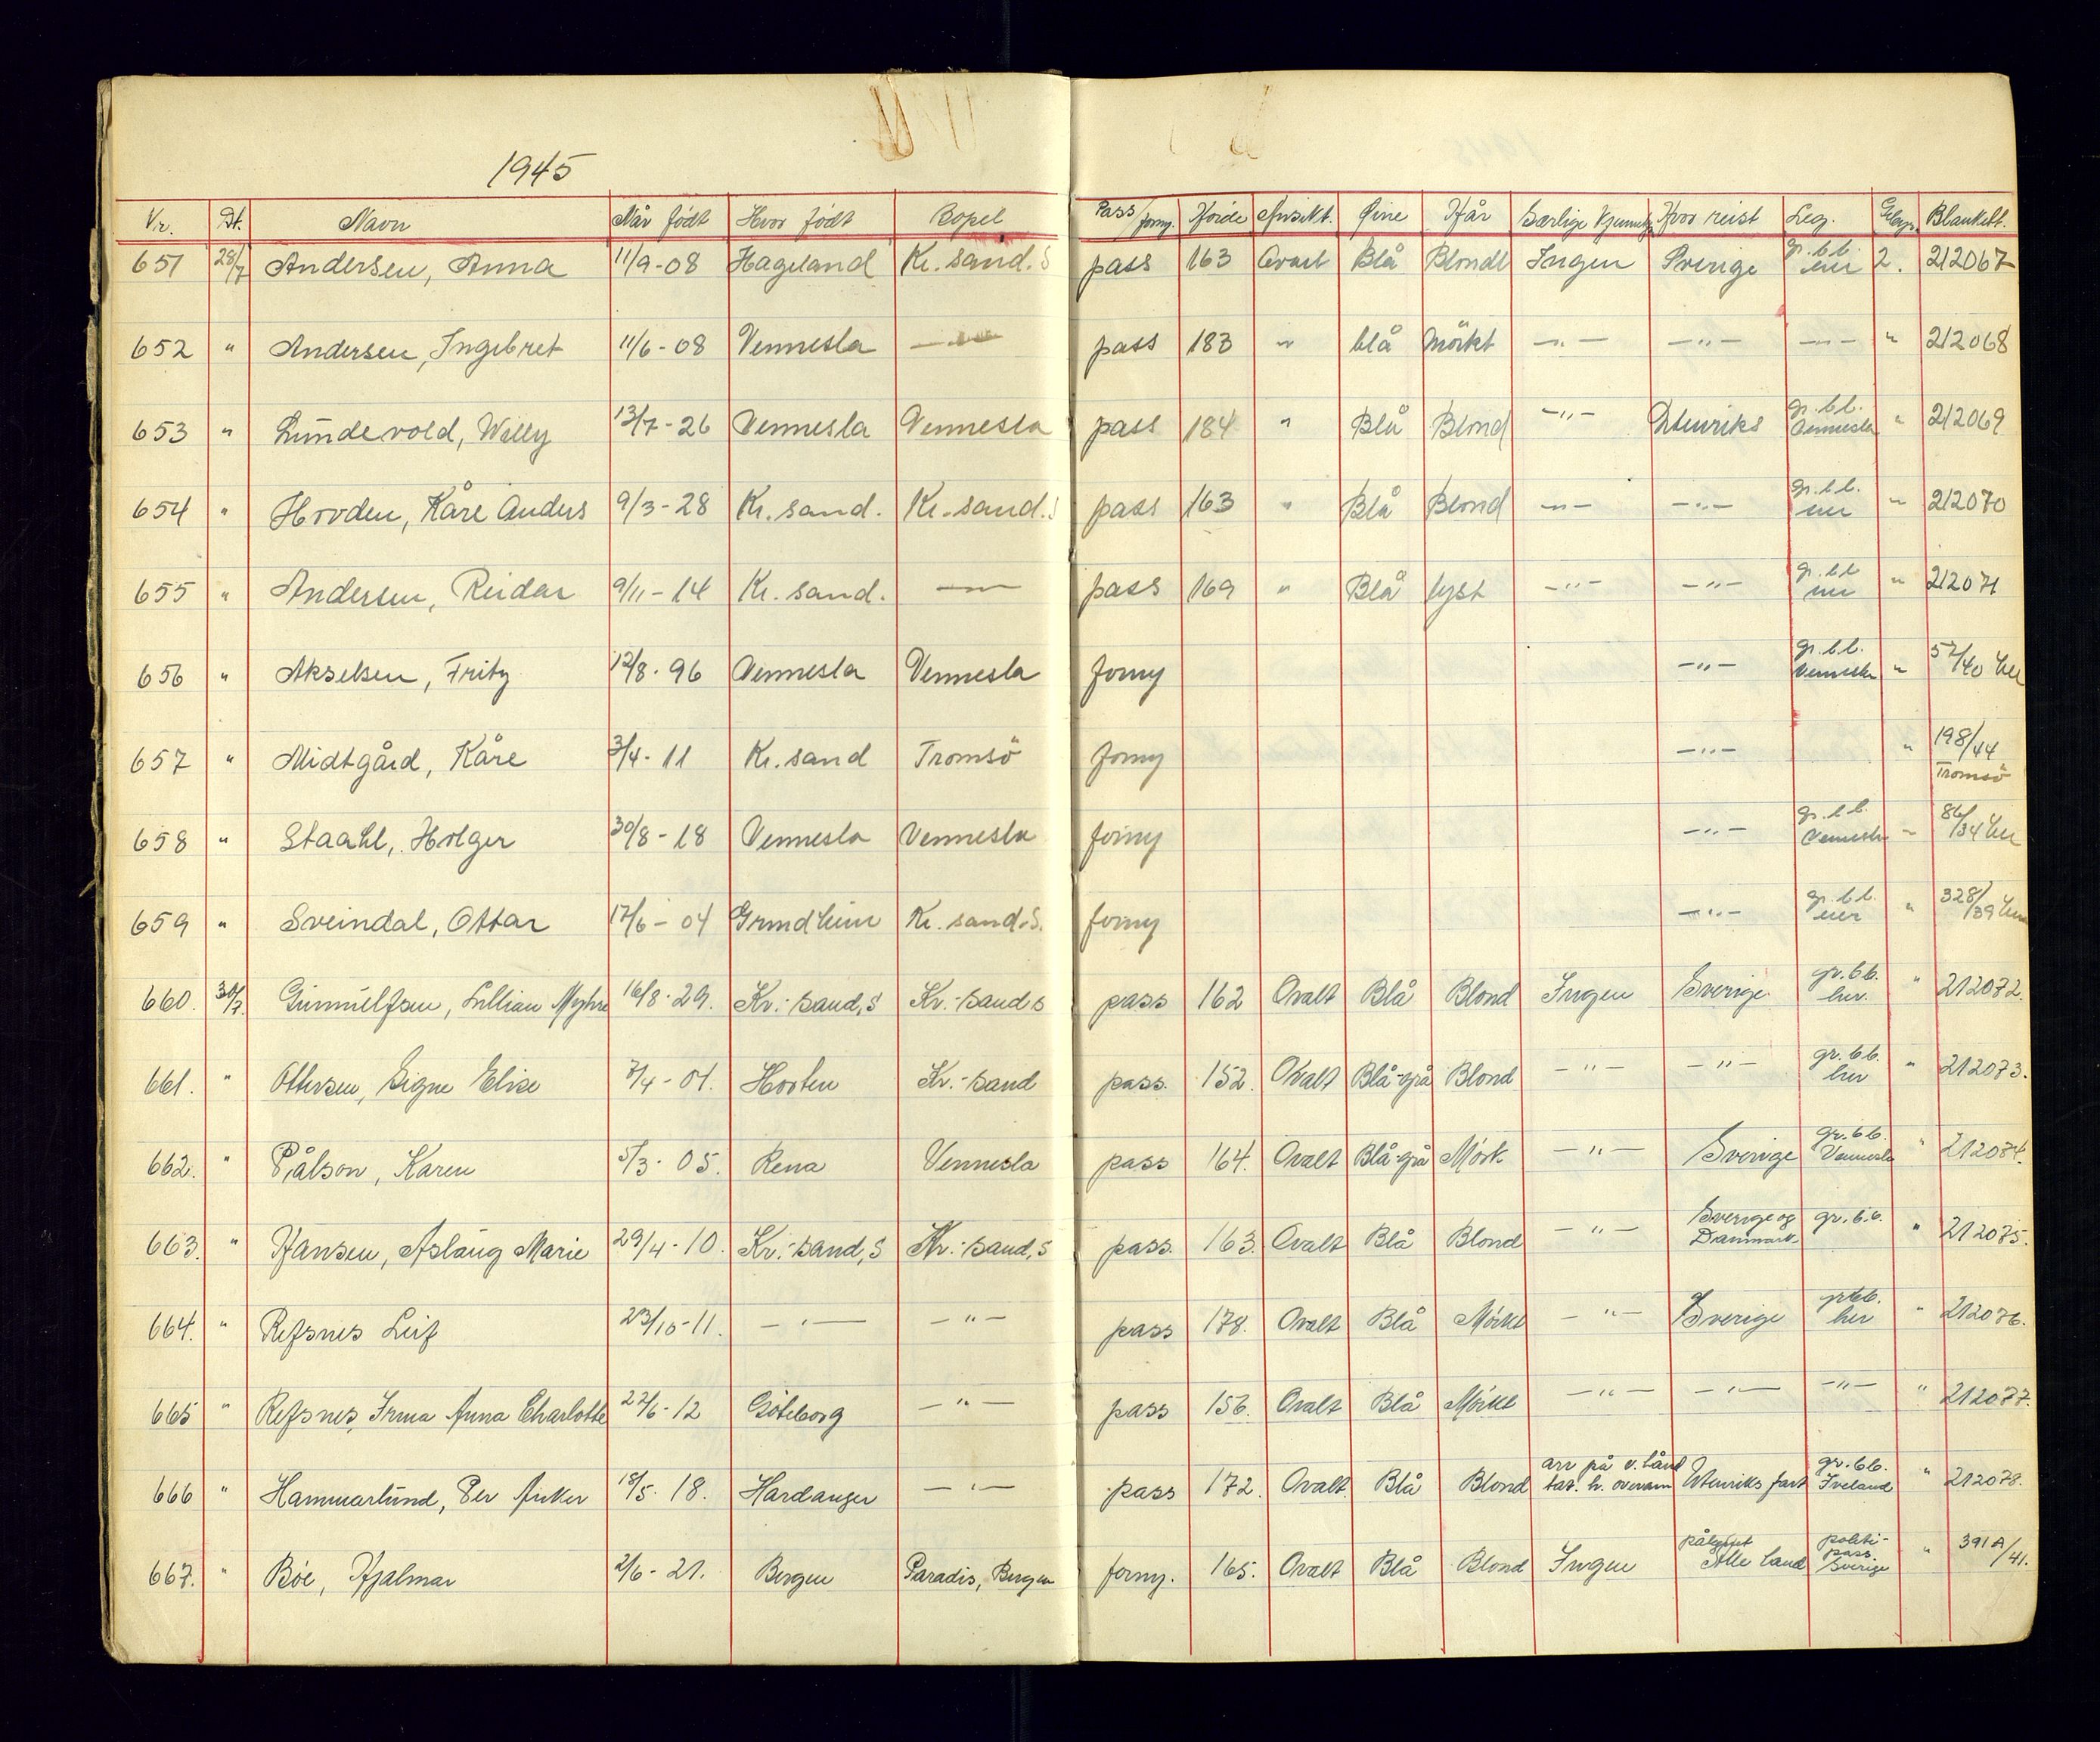 1945
Nr. Dt. Navn Når født Hvor født Bopel Pass/forny. Høide Ansikt. Øine Hår Særlige Kjennetegn Hvor reist Leg. Blankett.
651 28/7 Andersen, Anna 11/9-08 Hageland Kr. sand. S pass 163 Ovalt Blå Blondt Ingen Sverige gr. b.b. her 2. 212067
652 " Andersen, Ingebret 11/6-08 Vennesla —"— pass 183 " blå Mörkt —"— —"— —"— " 212068
653 " Lundevold, Willy 13/7-26 Vennesla Vennesla pass 184 " Blå Blond —"— Utenriks gr. b.b. Vennesla " 212069
654 " Hovden, Kåre Anders 9/3-28 Kr. sand. Kr. sand. S pass 163 " Blå Blond —"— —"— gr. b.b. her " 212070
655 " Andersen, Reidar 9/11-14 Kr. sand. —"— pass 169 " Blå lyst —"— —"— gr. b.b her " 212071
656 " Akselsen, Fritz 12/8-96 Vennesla Vennesla forny —"— gr. b.b. Vennesla " 57/40 her
657 " Midtgård, Kåre 3/4-11 Kr. sand Tromsö forny —"— " 198/44 Tromsö
658 " Staahl, Holger 30/8-18 Vennesla Vennesla forny —"— gr. b.b. Vennesla " 86/34 her
659 " Sveindal, Ottar 17/6-04 Grindheim Kr. sand. S. forny —"— gr. b.b. her " 328/39 her
660. 30/7. Gunnulfsen, Lillian Myhre 16/8-29. Kr.-sand, S Kr.-sand S pass 162 Ovalt Blå Blond Ingen Sverige gr. bb. her. " 212072.
661. " Ottersen, Signe Elise 7/4-01. Horten Kr.-sand pass. 152. Ovalt Blå-grå Blond —"— —"— gr. bb. her " 212073.
662. " Pålson, Karen 5/3-05. Rena Vennesla pass 164. Ovalt Blå-grå Mörk —"— Sverige gr. bb. Vennesla " 212074.
663. " Hansen, Aslaug Marie 29/4-10. Kr.-sand, S Kr.-sand, S pass. 163. Ovalt Blå Blond —"— Sverige og Danmark gr. b.b. " 212075.
664. " Refsnes Leif 23/10-11. —"— —"— pass 178. Ovalt Blå Mörkt —"— Sverige gr. bb. her " 212076.
665 " Refsnes, Irma Anna Charlotte 22/6-12 Göteborg —"— pass 156. Ovalt Blå Mörkt —"— —"— —"— " 212077.
666 " Hammarlund, Per Anker 18/5-18. Hardanger —"— pass 172. Ovalt. Blå Blond arr på v. hånd tat. h. overarm Utenriks fart gr. bb. Iveland " 212078.
667. " Böe, Hjalmar 2/6-21. Bergen Paradis, Bergen forny. 165. Ovalt Blå Blond Ingen påtegnet Alle land politi-pass. Sverige " 391A/41.